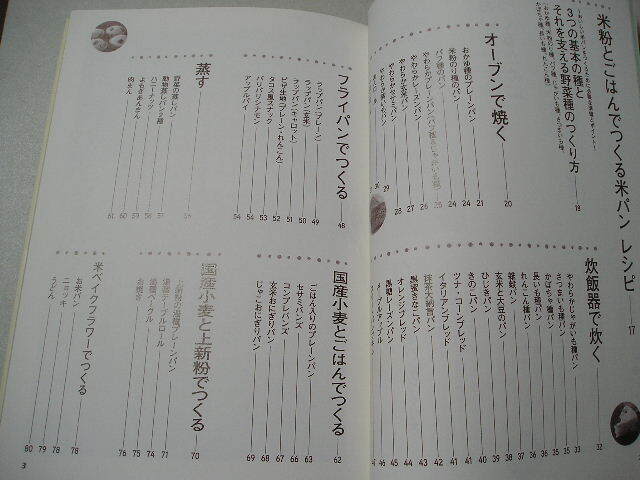 米粉とごはんでつくる米パン レシピ 17
3つの基本の種と
それを支える野菜種のつくり方 18
オーブンで焼く 20
おかゆ種のプレーンパン 21
米粉のり種のパン 24
パフ種のパン 24
やわらかレーズンパン
炊飯器で炊く 32
やわらかじゃがいも種パン 33
さつまいも種パン
かぼちゃ種パン
長いも種パン
れんこん種パン
雑穀パン
玄米と大豆のパン
ひじきパン
きのこパン
ツナ・コーンブレッド
イタリアンブレッド
抹茶大納言パン
黒蜜きなこパン
オレンジブレッド
黒糖レーズンパン
フライパンでつくる 48
ラップパン(プレーン) 49
ラップパン(玄米) 50
ラップパン(キャロット) 51
ピザ生地(プレーン・れんこん) 52
タコス風スナック 53
パリパリシナモン 54
アップルパイ 54
蒸す 56
野菜の蒸しパン 57
動物蒸しパン2種 58
ハニーナッツ 59
よもぎあんさん 60
肉まん 61
国産小麦とごはんでつくる 62
ごはん入りのプレーンパン 63
セサミバンズ 66
コーンブレバンズ 67
玄米おにぎりパン 68
じゃこおにぎりパン 69
国産小麦と上新粉でつくる 70
上新粉の湯種プレーンパン 71
湯種テーブルロール 74
湯種ベーグル 75
お焼き 76
米ベイクフラワーでつくる 78
お米パン 78
ニョッキ 79
うどん 80
3